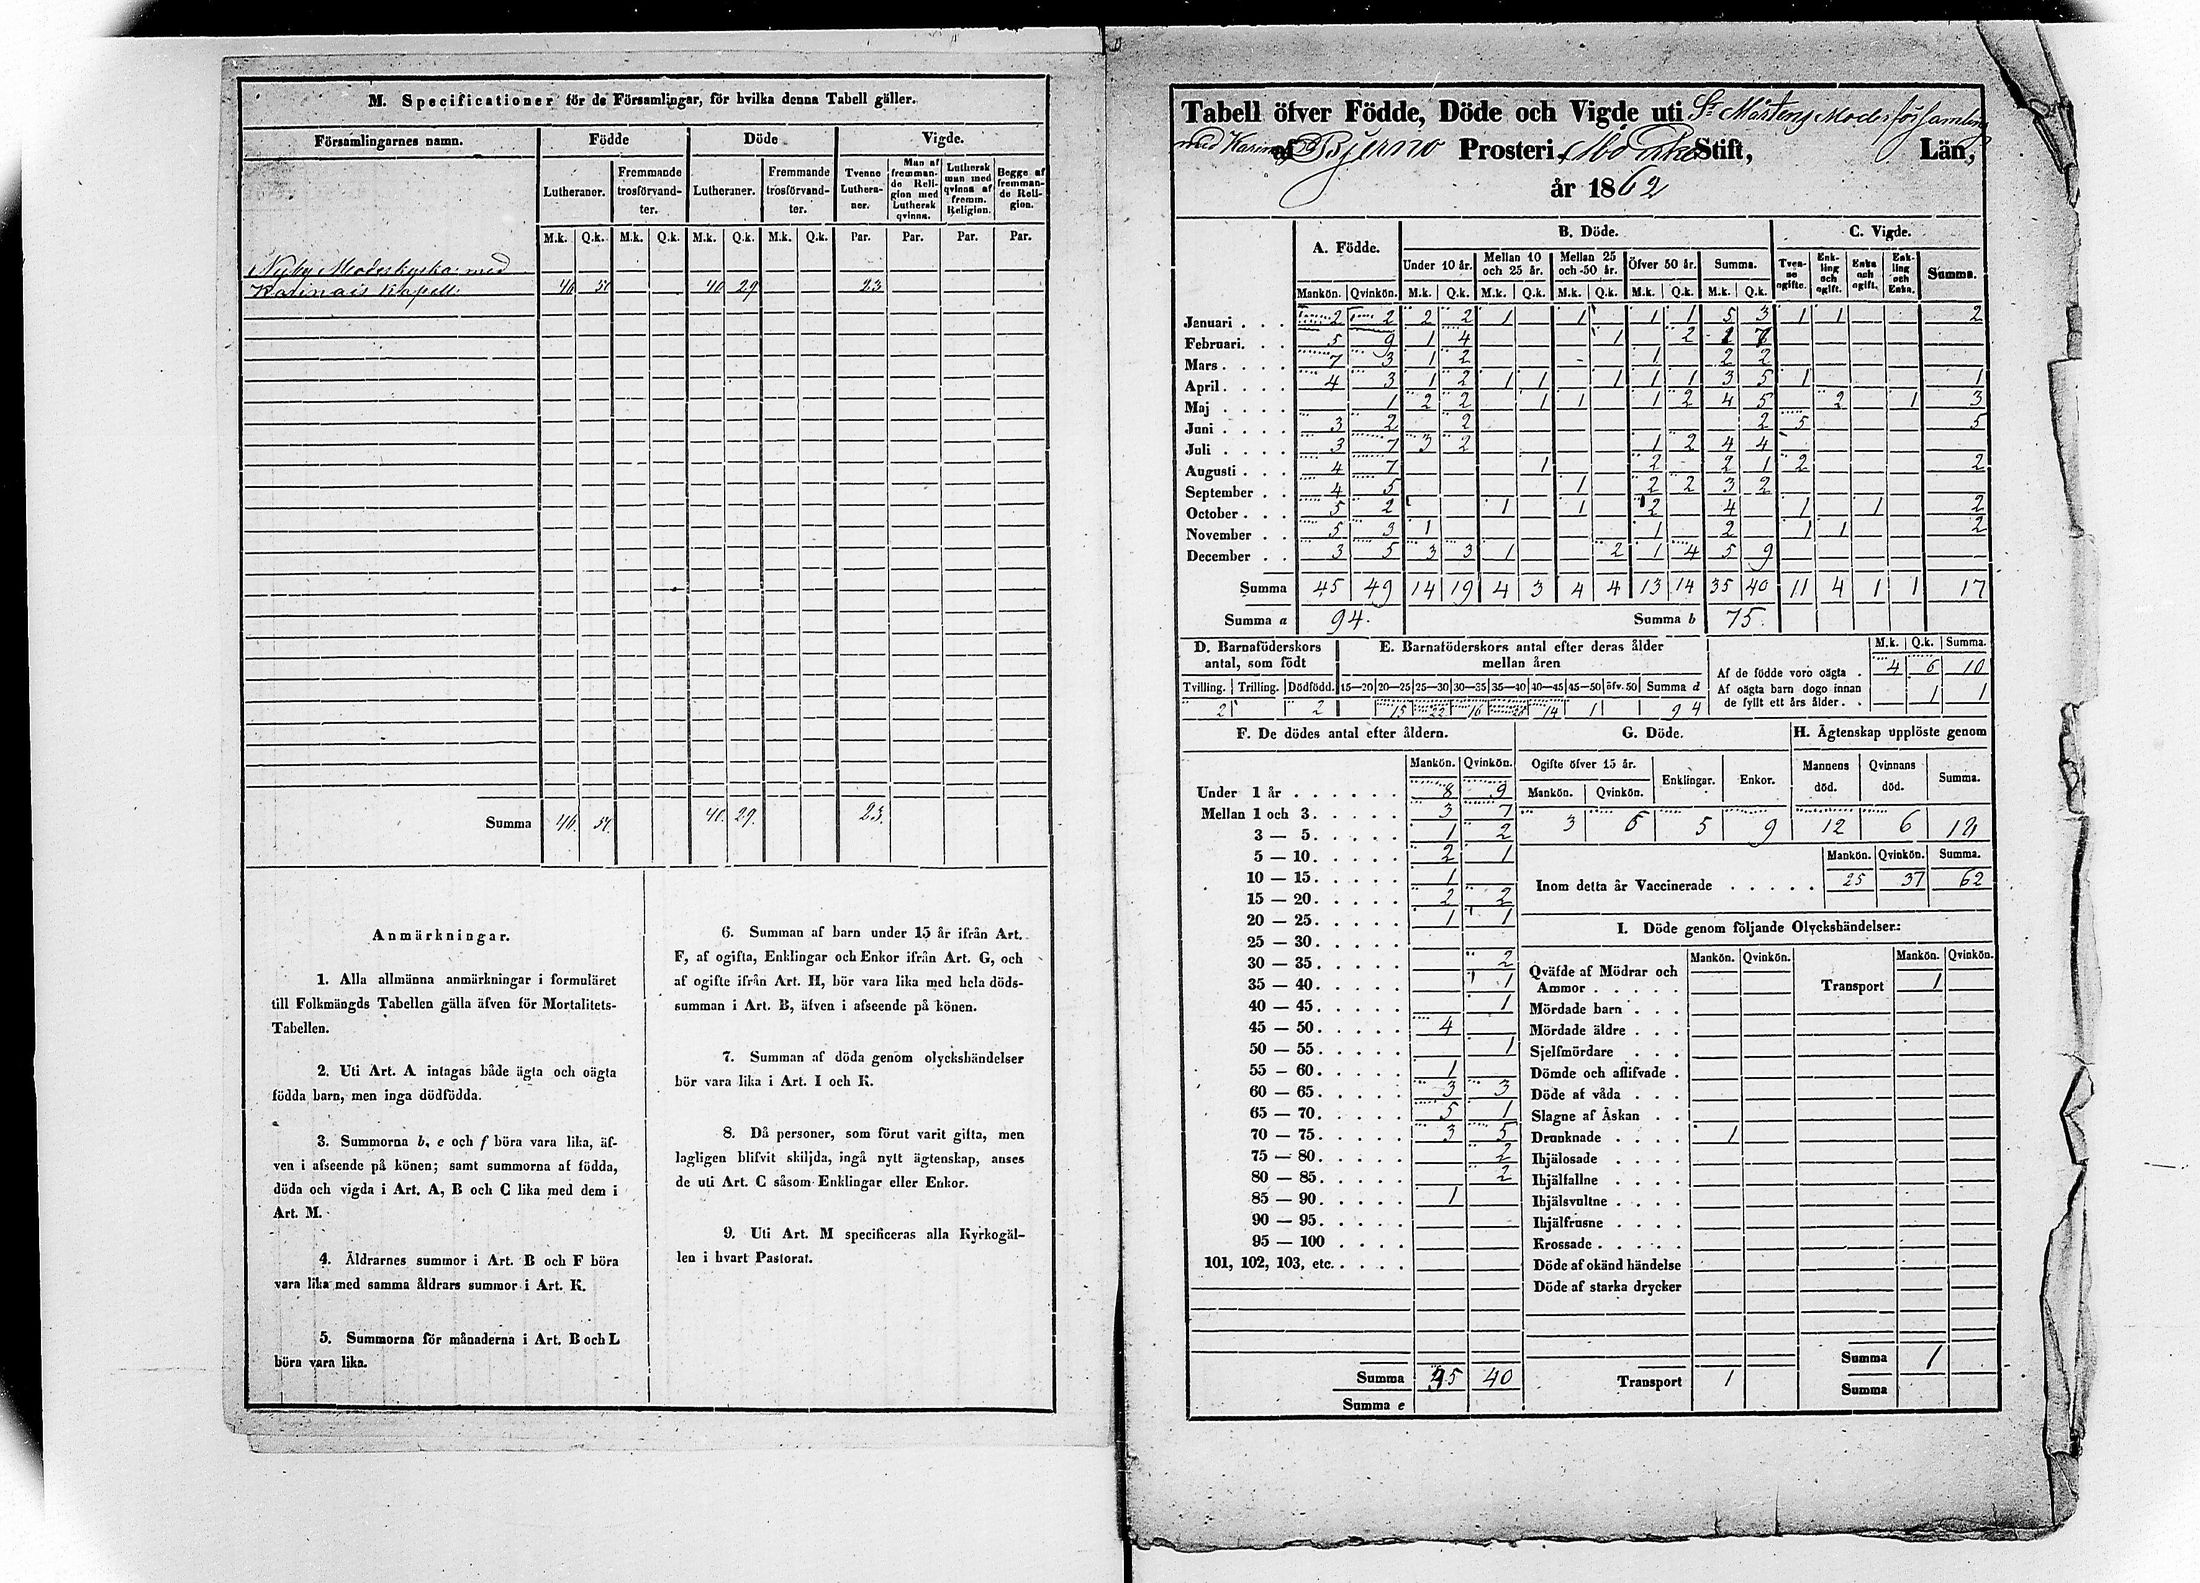 M. Specificationer för de Församlingar, för hvilka denna Tabell gäller.
Församlingarnes namn. Födde Döde Vigde.
Lutheraner. Fremmande trosförvand-ter. Lutheraner. Fremmande trosförvand-ter. Tvenne Luthera-ner. Man af fremman-de Reli-gion med Luthersk qvinna. Luthersk man med qvinna af fremm. Religion. Begge af fremman-de Reli-gion.
M.k. Q.k. M.k. Q.k. M.k. Q.k. M.k. Q.k. Par. Par. Par. Par.
Moderkyrka med
Karinais Kapell. 46 50 40 29 23
Summa 46. 50. 40. 29. 23.
Anmärkningar.
1. Alla allmänna anmärkningar i formuläret
till Folkmängds Tabellen gälla äfven för Mortalitets-
Tabellen.
2. Uti Art. A intagas både ägta och oägta
födda barn, men inga dödfödda.
3. Summorna b, e och f böra vara lika, äf-
ven i afseende på könen; samt summorna af födda,
döda och vigda i Art. A, B och C lika med dem i
Art. M.
4. Äldrarnes summor i Art. B och F böra
vara lika med samma åldrars summor i Art. K.
5. Summorna för månaderna i Art. B och L
böra vara lika.
6. Summan af barn under 15 år ifrån Art.
F, af ogifta, Enklingar och Enkor ifrån Art. G, och
af ogifte ifrån Art. H, bör vara lika med hela döds-
summan i Art. B, äfven i afseende på könen.
7. Summan af döda genom olyckshändelser
bör vara lika i Art. I och K.
8. Då personer, som förut varit gifta, men
lagligen blifvit skiljda, ingå nytt ägtenskap, anses
de uti Art. C såsom Enklingar eller Enkor.
9. Uti Art. M specificeras alla Kyrkogäl-
len i hvart Pastorat.
Tabell öfver Födde, Döde och Vigde uti St Mårtens Moderförsamling
med af Bjerno Prosteri, Åbo Stift, Län,
år 1862
A. Födde. B. Döde. C. Vigde.
Under 10 år. Mellan 10 och 25 år. Mellan 25 och 50 år. Öfver 50 år. Summa. Tven-ne ogifte. Enk-ling och ogift. Enka och ogift. Enk-ling och Enka. Summa.
Mankön. Qvinkön. M.k. Q.k. M.k. Q.k. M.k. Q.k. M.k. Q.k. M.k. Q.k.
Januari . . . 2 2 2 2 1 1 1 1 5 3 1 1 2
Februari. . . 5 9 1 4 1 2 1 7
Mars . . . . 7 3 1 2 1 2 2
April . . . . 4 3 1 2 1 1 1 1 1 3 5 1 1
Maj . . . . 1 2 2 1 1 1 2 4 5 2 1 3
Juni . . . . 3 2 2 2 5 5
Juli . . . . 3 7 3 2 1 2 4 4
Augusti . . . 4 7 1 2 2 1 2 2
September . . 4 5 1 2 2 3 2
October . . . 5 2 1 1 2 4 1 1 2
November . . 5 3 1 1 2 1 1 2
December . . 3 5 3 3 1 2 1 4 5 9
Summa 45 49 14 19 4 3 4 4 13 14 35 40 11 4 1 1 17
Summa a 94. Summa b 75.
D. Barnaföderskors antal, som födt
Tvilling. Trilling. Dödfödd.
2 2
E. Barnaföderskors antal efter deras ålder mellan åren
15—20 20—25 25—30 30—35 35—40 40—45 45—50 öfv. 50 Summa d
15 22 16 14 1 94
M.k. Q.k. Summa.
Af de födde voro oägta . 4 6 10
Af oägta barn dogo innan
de fyllt ett års ålder . . 1 1
F. De dödes antal efter åldern.
Mankön. Qvinkön.
Under 1 år . . . . . . 8 9
Mellan 1 och 3. . . . . 3 7
3 — 5. . . . . 1 2
5 — 10. . . . . 2 1
10 — 15. . . . . 1
15 — 20. . . . . 2 2
20 — 25. . . . . 1 1
25 — 30. . . . .
30 — 35. . . . . 2
35 — 40. . . . . 1
40 — 45. . . . . 1
45 — 50. . . . . 4
50 — 55. . . . . 1
55 — 60. . . . . 1
60 — 65. . . . . 3 3
65 — 70. . . . . 5 1
70 — 75. . . . . 3 5
75 — 80. . . . . 2
80 — 85. . . . . 2
85 — 90. . . . . 1
90 — 95. . . . .
95 — 100 . . . .
101, 102, 103, etc. . . . .
Summa 35 40
Summa e
G. Döde.
Ogifte öfver 15 år. Enklingar. Enkor.
Mankön. Qvinkön.
3 6 5 9
H. Ägtenskap upplöste genom
Mannens död. Qvinnans död. Summa.
12 6 18
Mankön. Qvinkön. Summa.
Inom detta år Vaccinerade . . . . . 25 37 62
I. Döde genom följande Olyckshändelser:
Mankön. Qvinkön. Mankön. Qvinkön.
Qväfde af Mödrar och
Ammor . . . . . Transport 1
Mördade barn . . .
Mördade äldre . . .
Sjelfmördare . . .
Dömde och aflifvade .
Döde af våda . . .
Slagne af Åskan . .
Drunknade . . . . 1
Ihjälosade . . . .
Ihjälfallne . . . .
Ihjälsvultne . . . .
Ihjälfrusne . . . .
Krossade . . . . .
Döde af okänd händelse
Döde af starka drycker
Summa 1
Transport 1 Summa